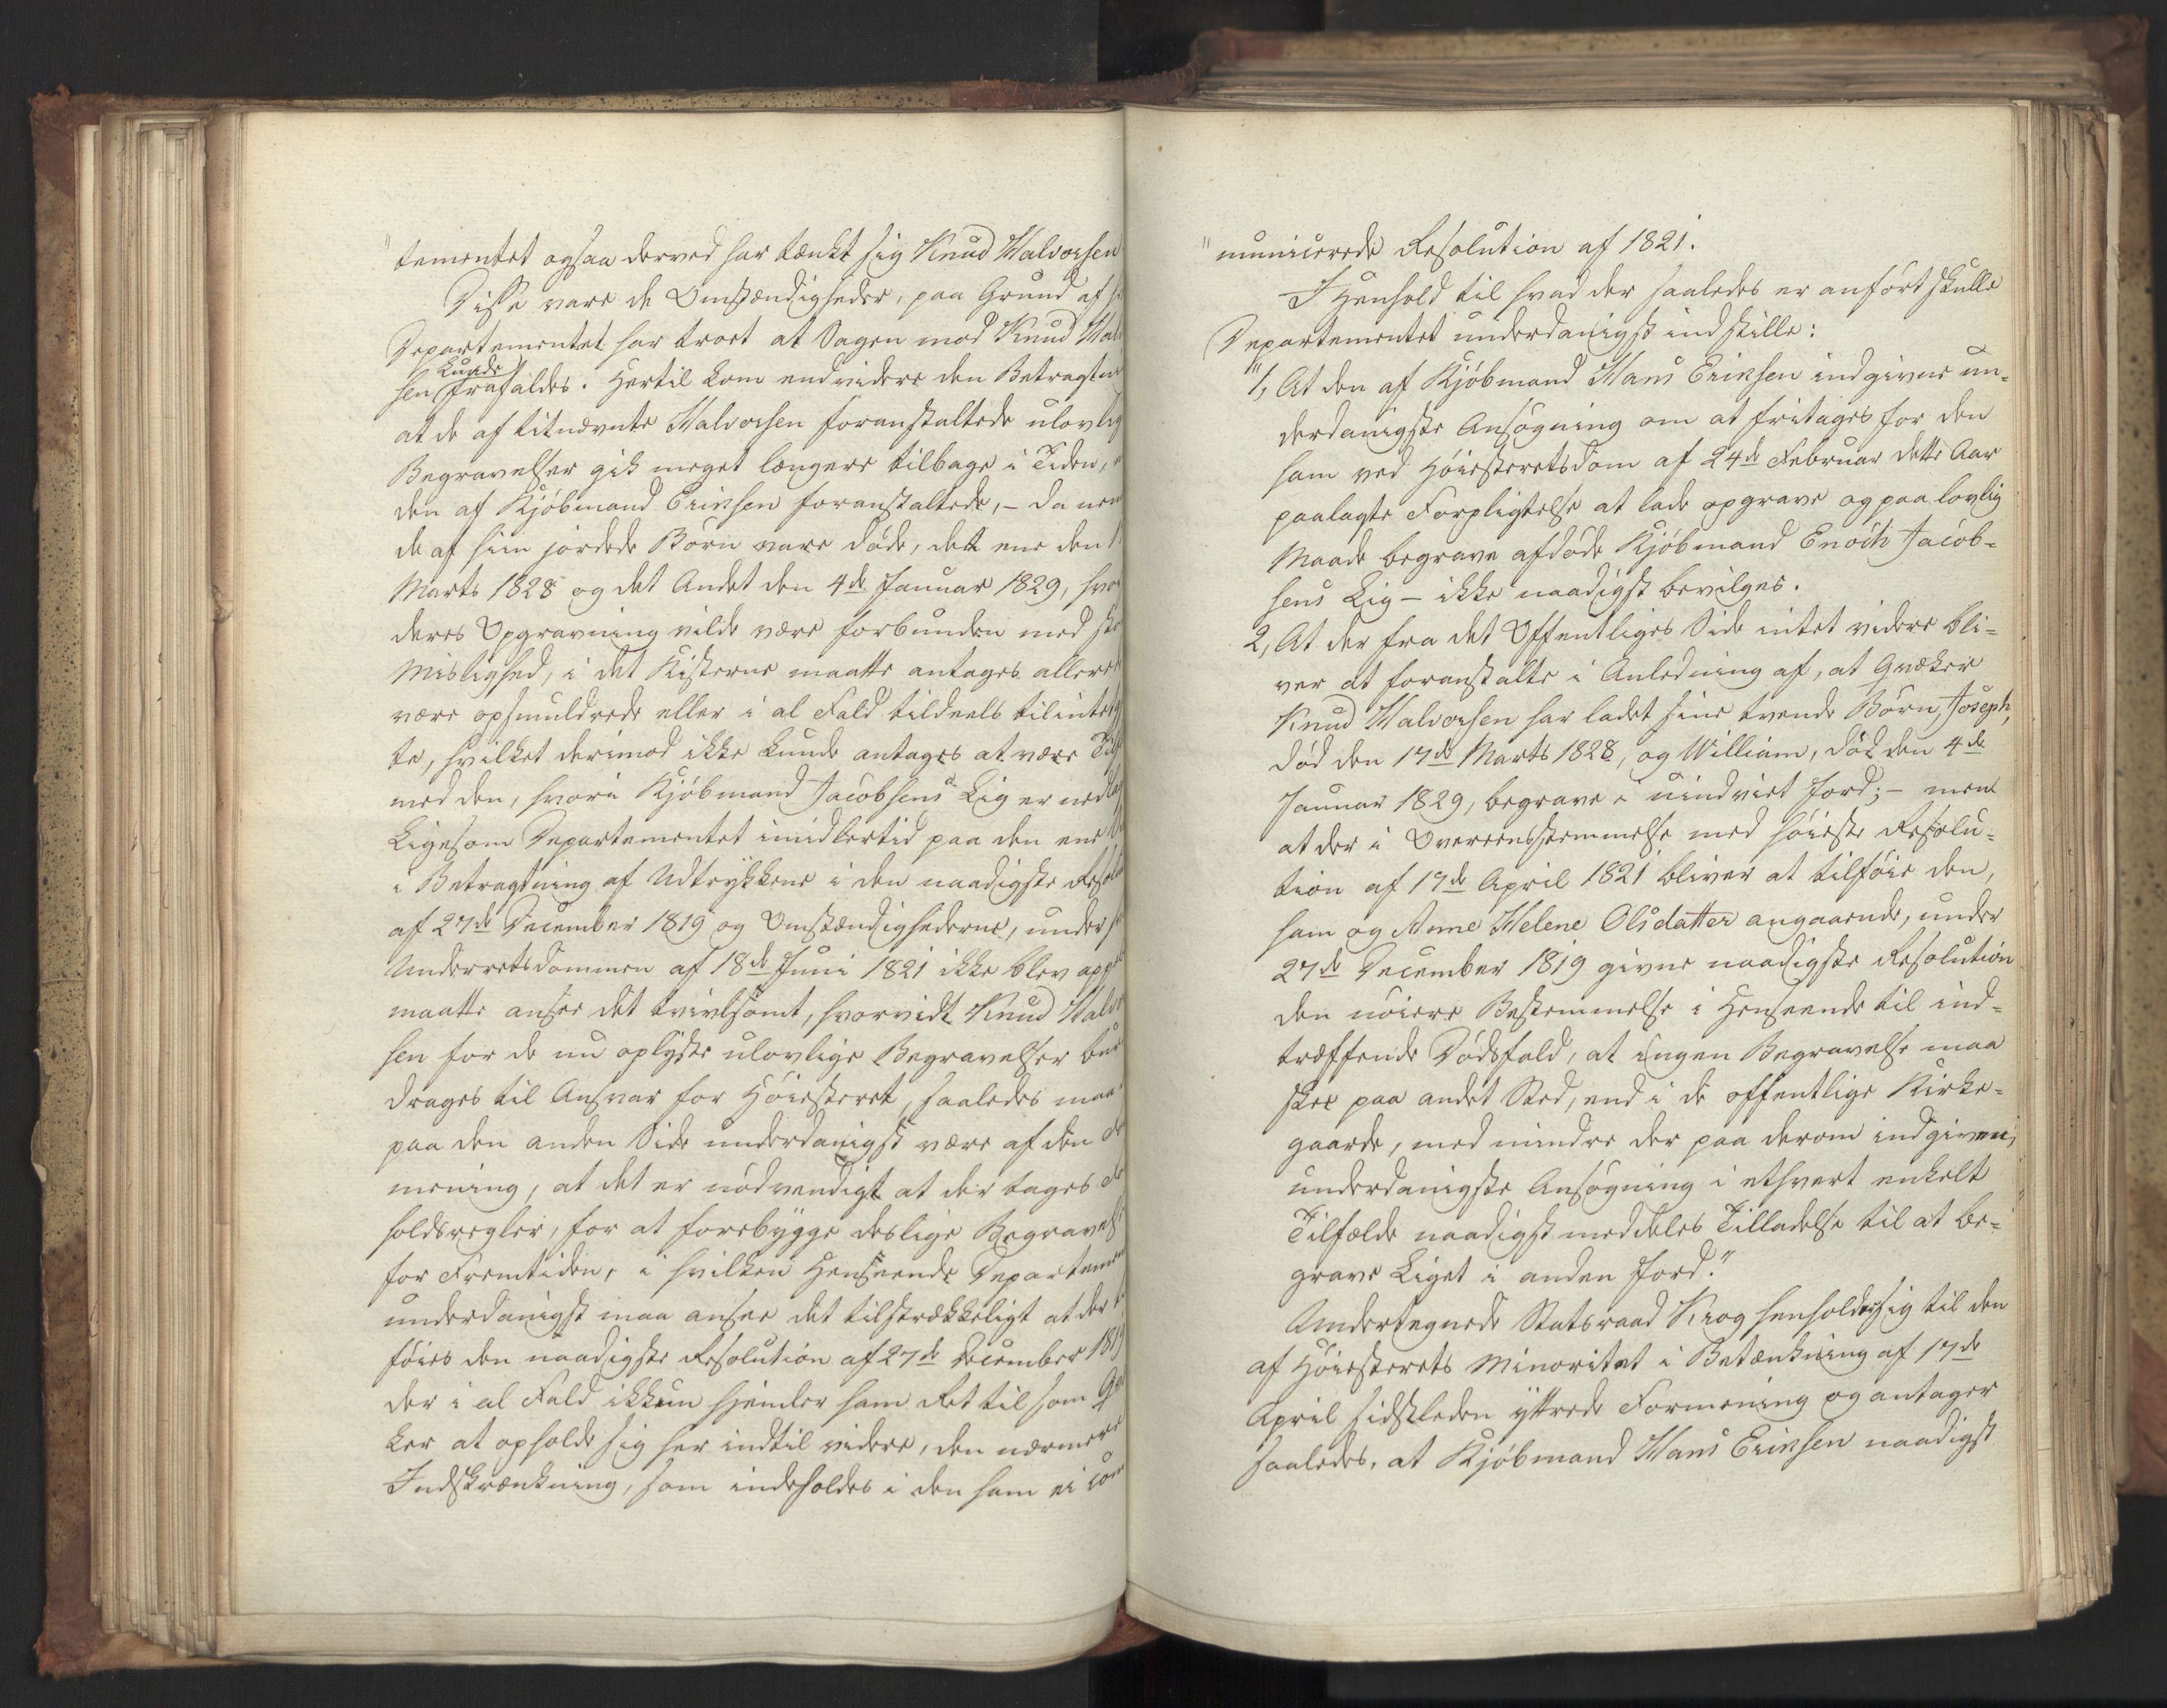 "tementet ogsaa derved har tænkt sig Knud Halvorsen
Disse vare de Omstændigheder, paa Grund af
Departementet har troet at Sagen mod Knud
sen kunde frafaldes. Hertil kom endvidere den
at de af bemeldte Halvorsen foranstaltede
Begravelser gik meget længere tilbage i Tiden,
den af Kjøbmand Eriksen foranstaltede, – da
de af ham jordede Børn vare døde, det ene den
Marts 1828 og det Andet den 4de Januar 1829,
deres Opgravning vilde være forbunden med
Mislighed, i det Kisterne maatte antages
være opsmuldrede eller i al Fald tildeels
te, hvilket derimod ikke kunde antages at være
med den, hvori Kjøbmand Jacobsens Lig er
Ligesom Departementet imidlertid paa den ene
i Betragtning af Udtrykkene i den naadigste
af 27de December 1819 og Omstændighederne, under
Underretsdommen af 18de Juni 1821 ikke blev
maatte ansee det tvivlsomt, hvorvidt Knud
sen for de nu oplyste ulovlige Begravelser
drages til Ansvar for Høiesteret, saaledes maa
paa den anden Side underdanigst være af den
mening, at det er nødvendigt at der tages
holdsregler, for at forebygge deslige
for Fremtiden, i hvilken Henseende
underdanigst maa ansee det tilstrækkeligt at der
føies den naadigste Resolution af 27de December 1819
der i al Fald ikkun hjemler ham Ret til som
ker at opholde sig her indtil videre, den nærmere
Indskrænkning, som indeholdes i den ham ei
"municerede Resolution af 1821.
I Henhold til hvad der saaledes er anført skulle
Departementet underdanigst indstille:
"1, At den af Kjøbmand Hans Eriksen indgivne un-
derdanigste Ansøgning om at fritages for den
ham ved Høiesteretsdom af 24de Februar dette Aar
paalagte Forpligtelse at lade opgrave og paa lovlig
Maade begrave afdøde Kjøbmand Enoch Jacob-
sens Lig – ikke naadigst bevilges.
2, At der fra det Offentliges Side intet videre bli-
ver at foranstalte i Anledning af, at Qvæker
Knud Halvorsen har ladet sine tvende Børn, Joseph,
død den 17de Marts 1828, og William, død den 4de
Januar 1829, begrave i uindviet Jord; – men
at der i Overeensstemmelse med høieste Resolu-
tion af 17de April 1821 bliver at tilføie den,
ham og Anne Helene Olsdatter angaaende, under
27de December 1819 givne naadigste Resolution
den nøiere Bestemmelse i Henseende til ind-
træffende Dødsfald, at ingen Begravelse maa
skee paa andet Sted, end i de offentlige Kirke-
gaarde, med mindre der paa derom indgiven,
underdanigste Ansøgning i ethvert enkelt
Tilfælde naadigst meddeles Tilladelse til at be-
grave Liget i anden Jord."
Undertegnede Statsraad Krog henholder sig til den
af Høiesterets Minoritet i Betænkning af 17de
April sidstleden yttrede Formening og antager
saaledes, at Kjøbmand Hans Eriksen naadigst